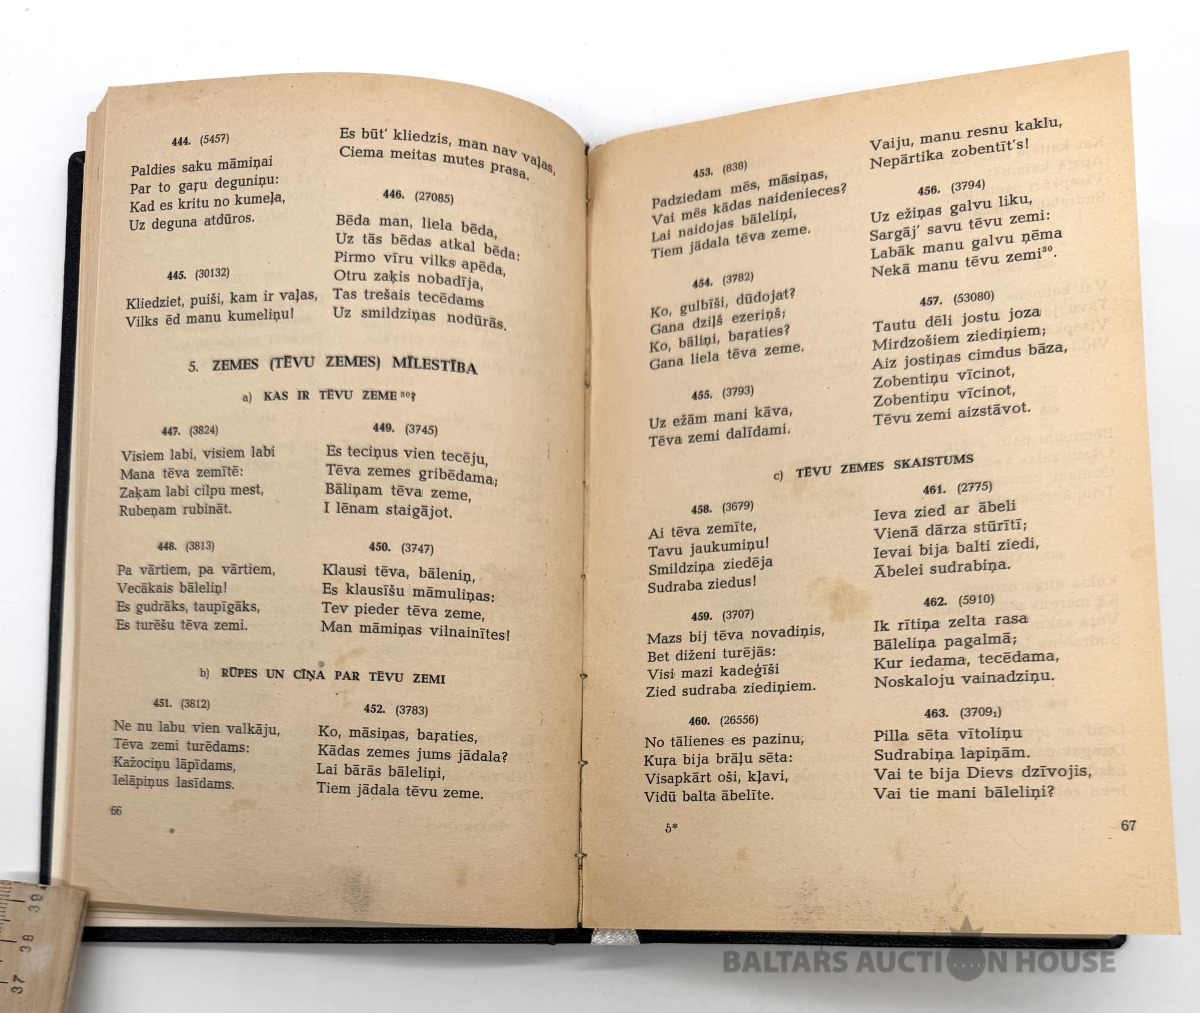 444. (5457)
Paldies saku māmiņai
Par to gaŗu deguniņu:
Kad es kritu no kumeļa,
Uz deguna atdūros.
445. (30132)
Kliedziet, puiši, kam ir vaļas,
Vilks ēd manu kumeliņu!
Es būt' kliedzis, man nav vaļas,
Ciema meitas mutes prasa.
446. (27085)
Bēda man, liela bēda,
Uz tās bēdas atkal bēda:
Pirmo vīru vilks apēda,
Otru zaķis nobadīja,
Tas trešais tecēdams
Uz smildziņas nodūrās.
5. ZEMES (TĒVU ZEMES) MĪLESTĪBA
a) KAS IR TĒVU ZEME³⁰?
447. (3824)
Visiem labi, visiem labi
Mana tēva zemītē:
Zaķam labi cilpu mest,
Rubeņam rubināt.
448. (3813)
Pa vārtiem, pa vārtiem,
Vecākais bāleliņ!
Es gudrāks, taupīgāks,
Es turēšu tēva zemi.
449. (3745)
Es teciņus vien tecēju,
Tēva zemes gribēdama;
Bāliņam tēva zeme,
I lēnam staigājot.
450. (3747)
Klausi tēva, bāleniņ,
Es klausīšu māmuliņas:
Tev pieder tēva zeme,
Man māmiņas vilnainītes!
b) RŪPES UN CĪŅA PAR TĒVU ZEMI
451. (3812)
Ne nu labu vien valkāju,
Tēva zemi turēdams:
Kažociņu lāpīdams,
Ielāpiņus lasīdams.
452. (3783)
Ko, māsiņas, baŗaties,
Kādas zemes jums jādala?
Lai bārās bāleliņi,
Tiem jādala tēvu zeme.
66
453. (838)
Padziedam mēs, māsiņas,
Vai mēs kādas naidenieces?
Lai naidojas bāleliņi,
Tiem jādala tēva zeme.
454. (3782)
Ko, gulbīši, dūdojat?
Gana dziļš ezeriņš;
Ko, bāliņi, baŗaties?
Gana liela tēva zeme.
455. (3793)
Uz ežām mani kāva,
Tēva zemi dalīdami.
Vaiju, manu resnu kaklu,
Nepārtika zobentīt's!
456. (3794)
Uz ežiņas galvu liku,
Sargāj' savu tēvu zemi:
Labāk manu galvu ņēma
Nekā manu tēvu zemi³⁰.
457. (53080)
Tautu dēli jostu joza
Mirdzošiem ziediņiem;
Aiz jostiņas cimdus bāza,
Zobentiņu vīcinot,
Zobentiņu vīcinot,
Tēvu zemi aizstāvot.
c) TĒVU ZEMES SKAISTUMS
458. (3679)
Ai tēva zemīte,
Tavu jaukumiņu!
Smildziņa ziedēja
Sudraba ziedus!
459. (3707)
Mazs bij tēva novadiņis,
Bet diženi turējās:
Visi mazi kadeģīši
Zied sudraba ziediņiem.
460. (26556)
No tālienes es pazinu,
Kuŗa bija brāļu sēta:
Visapkārt oši, kļavi,
Vidū balta ābelīte.
461. (2775)
Ieva zied ar ābeli
Vienā dārza stūrītī;
Ievai bija balti ziedi,
Ābelei sudrabiņa.
462. (5910)
Ik rītiņa zelta rasa
Bāleliņa pagalmā;
Kur iedama, tecēdama,
Noskaloju vainadziņu.
463. (3709₁)
Pilla sēta vītoliņu
Sudrabiņa lapiņām.
Vai te bija Dievs dzīvojis,
Vai tie mani bāleliņi?
5*
67
37 38 39
BALTARS AUCTION HOUSE